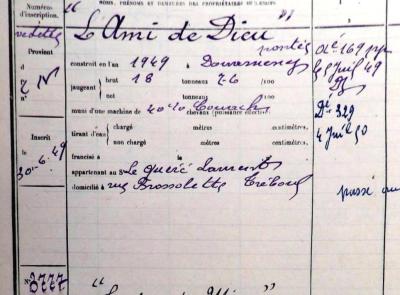 Numéros
d'inscription.
NOMS, PRÉNOMS ET DEMEURES DES PROPRIÉTAIRES
"L'Ami de Dieu"
Provient
d
construit en l'an 1949 à Douarnenez
jaugeant brut 18 tonneaux 26 /100
net tonneaux /100
muni d'une machine de chevaux (puissance effective).
tirant d'eau chargé mètres centimètres.
non chargé mètres centimètres.
francisé à
appartenant au S Le Queré Laurent
domicilié à rue Brossolette Tréboul
Inscrit
le
30.6.49
49
Dr 329
4 Juil 50
passé au
N° 3777